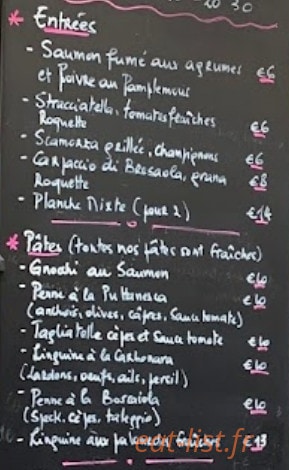 20 30
* Entrées
- Saumon fumé aux agrumes
et Poivre au Pamplemous €6
- Stracciatella, tomates fraîches
Roquette €6
- Scamorza grillée, champignons €6
- Carpaccio di Bresaola, grana
Roquette €8
- Planche Mixte (pour 2) €14
* Pâtes (toutes nos pâtes sont fraîches)
- Gnocchi au Saumon €10
- Penne à la Puttanesca €10
(anchois, olives, câpres, sauce tomate)
- Tagliatelle cèpes et sauce tomate €10
- Linguine à la Carbonara €10
(lardons, oeufs, ails, persil)
- Penne à la Boscaiola €10
(Speck, cèpes, taleggio)
- Linguine aux palourdes fraîches €13
eat-list.fr